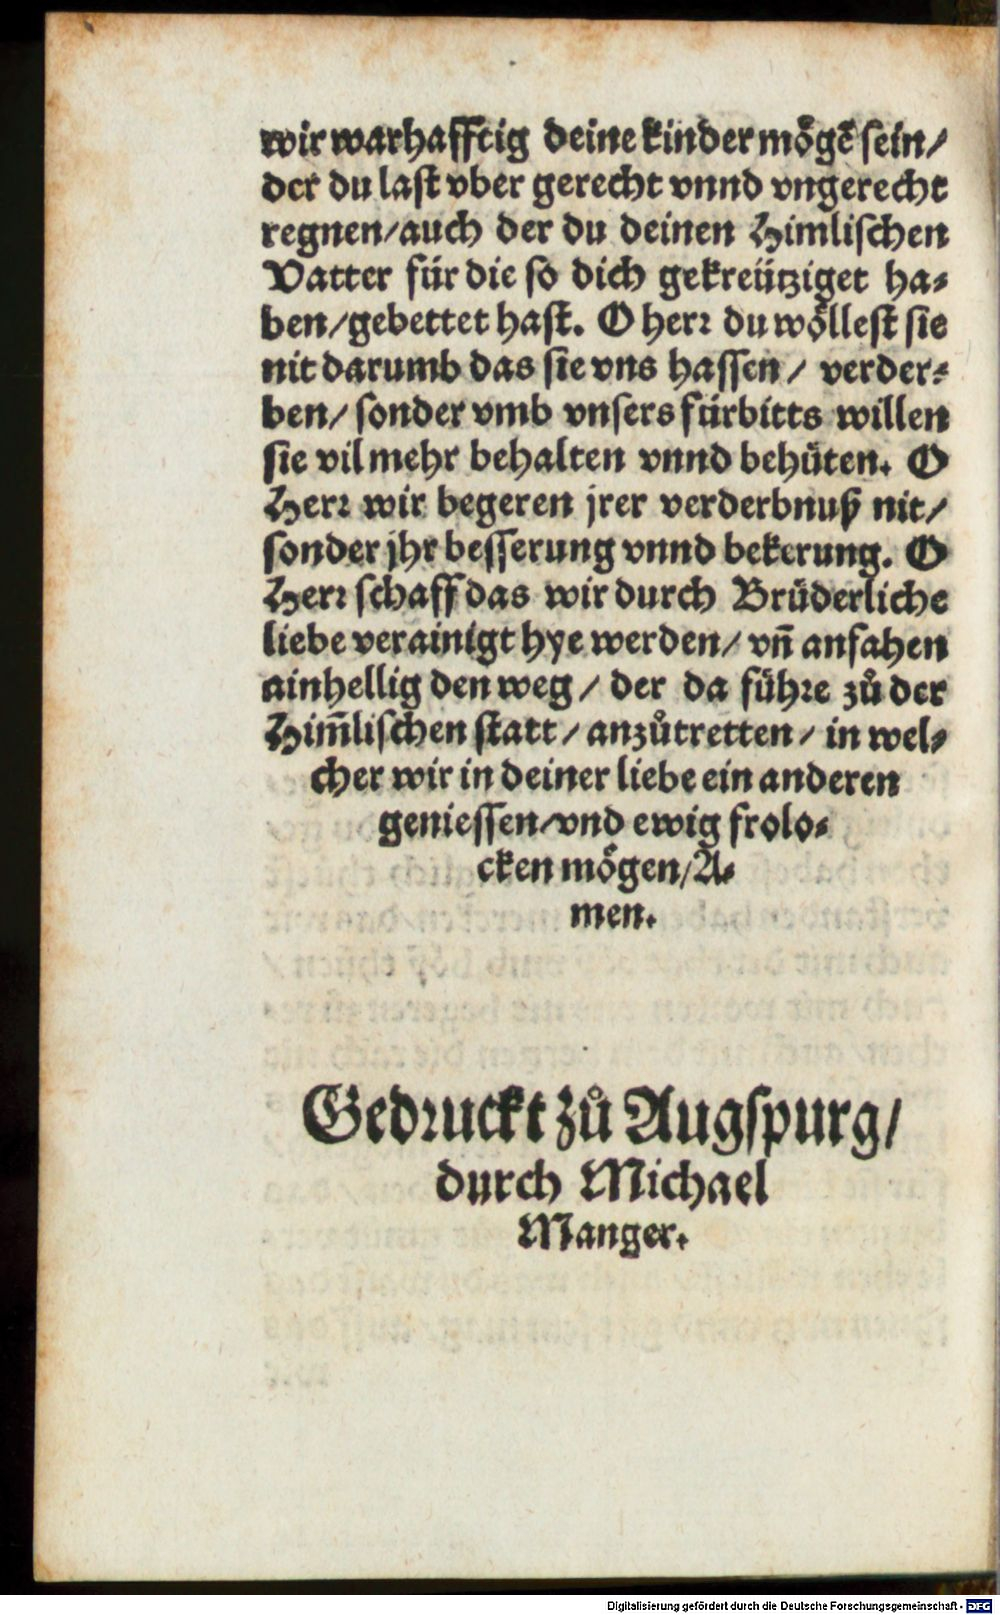 wir warhafftig deine kinder mögē sein/
der du last vber gerecht vnnd vngerecht
regnen/auch der du deinen Himlischen
Vatter für die so dich gekreütziget ha-
ben/gebettet hast. O herr du wöllest sie
nit darumb das sie vns hassen/ verder-
ben/ sonder vmb vnsers fürbitts willen
sie vil mehr behalten vnnd behüten. O
Herr wir begeren jrer verderbnuß nit/
sonder jhr besserung vnnd bekerung. O
Herr schaff das wir durch Brüderliche
liebe verainigt hye werden/ vñ anfahen
ainhellig den weg/ der da führe zů der
Him̃lischen statt/ anzůtretten/ in wel-
cher wir in deiner liebe ein anderen
geniessen/vnd ewig frolo-
cken mögen/A-
men.
Gedruckt zů Augspurg/
durch Michael
Manger.
Digitalisierung gefördert durch die Deutsche Forschungsgemeinschaft - DFG